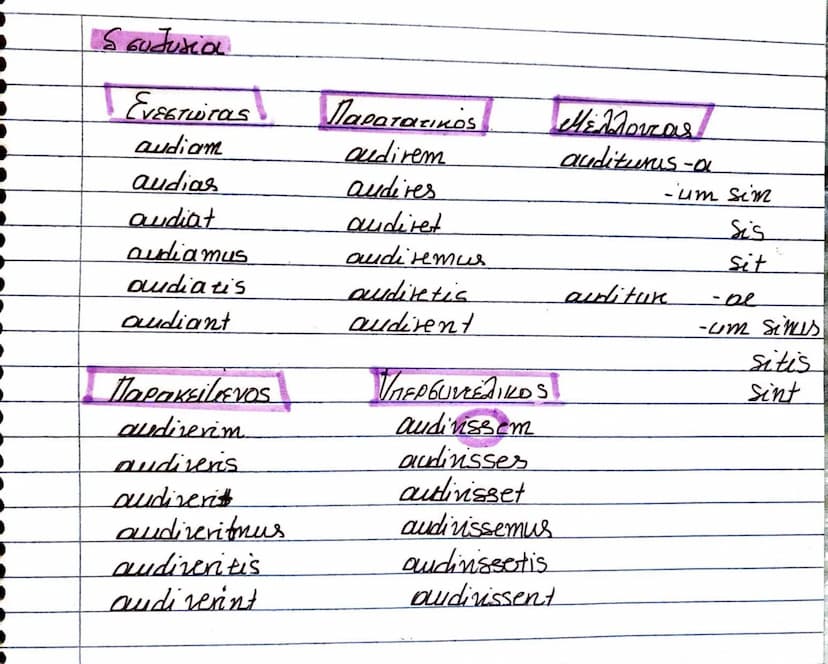 δ συζυγία
Ενεστώτας Παρατατικός Μέλλοντας
audiam audirem auditurus -a
audias audires -um sim
audiat audiret sis
audiamus audiremus sit
audiatis audiretis auditur -ae
audiant audirent -um simus
sitis
Παρακείμενος Υπερσυντέλικος sint
audiverim audivissem
audiveris audivisses
audiverit audivisset
audiverimus audivissemus
audiveritis audivissetis
audiverint audivissent